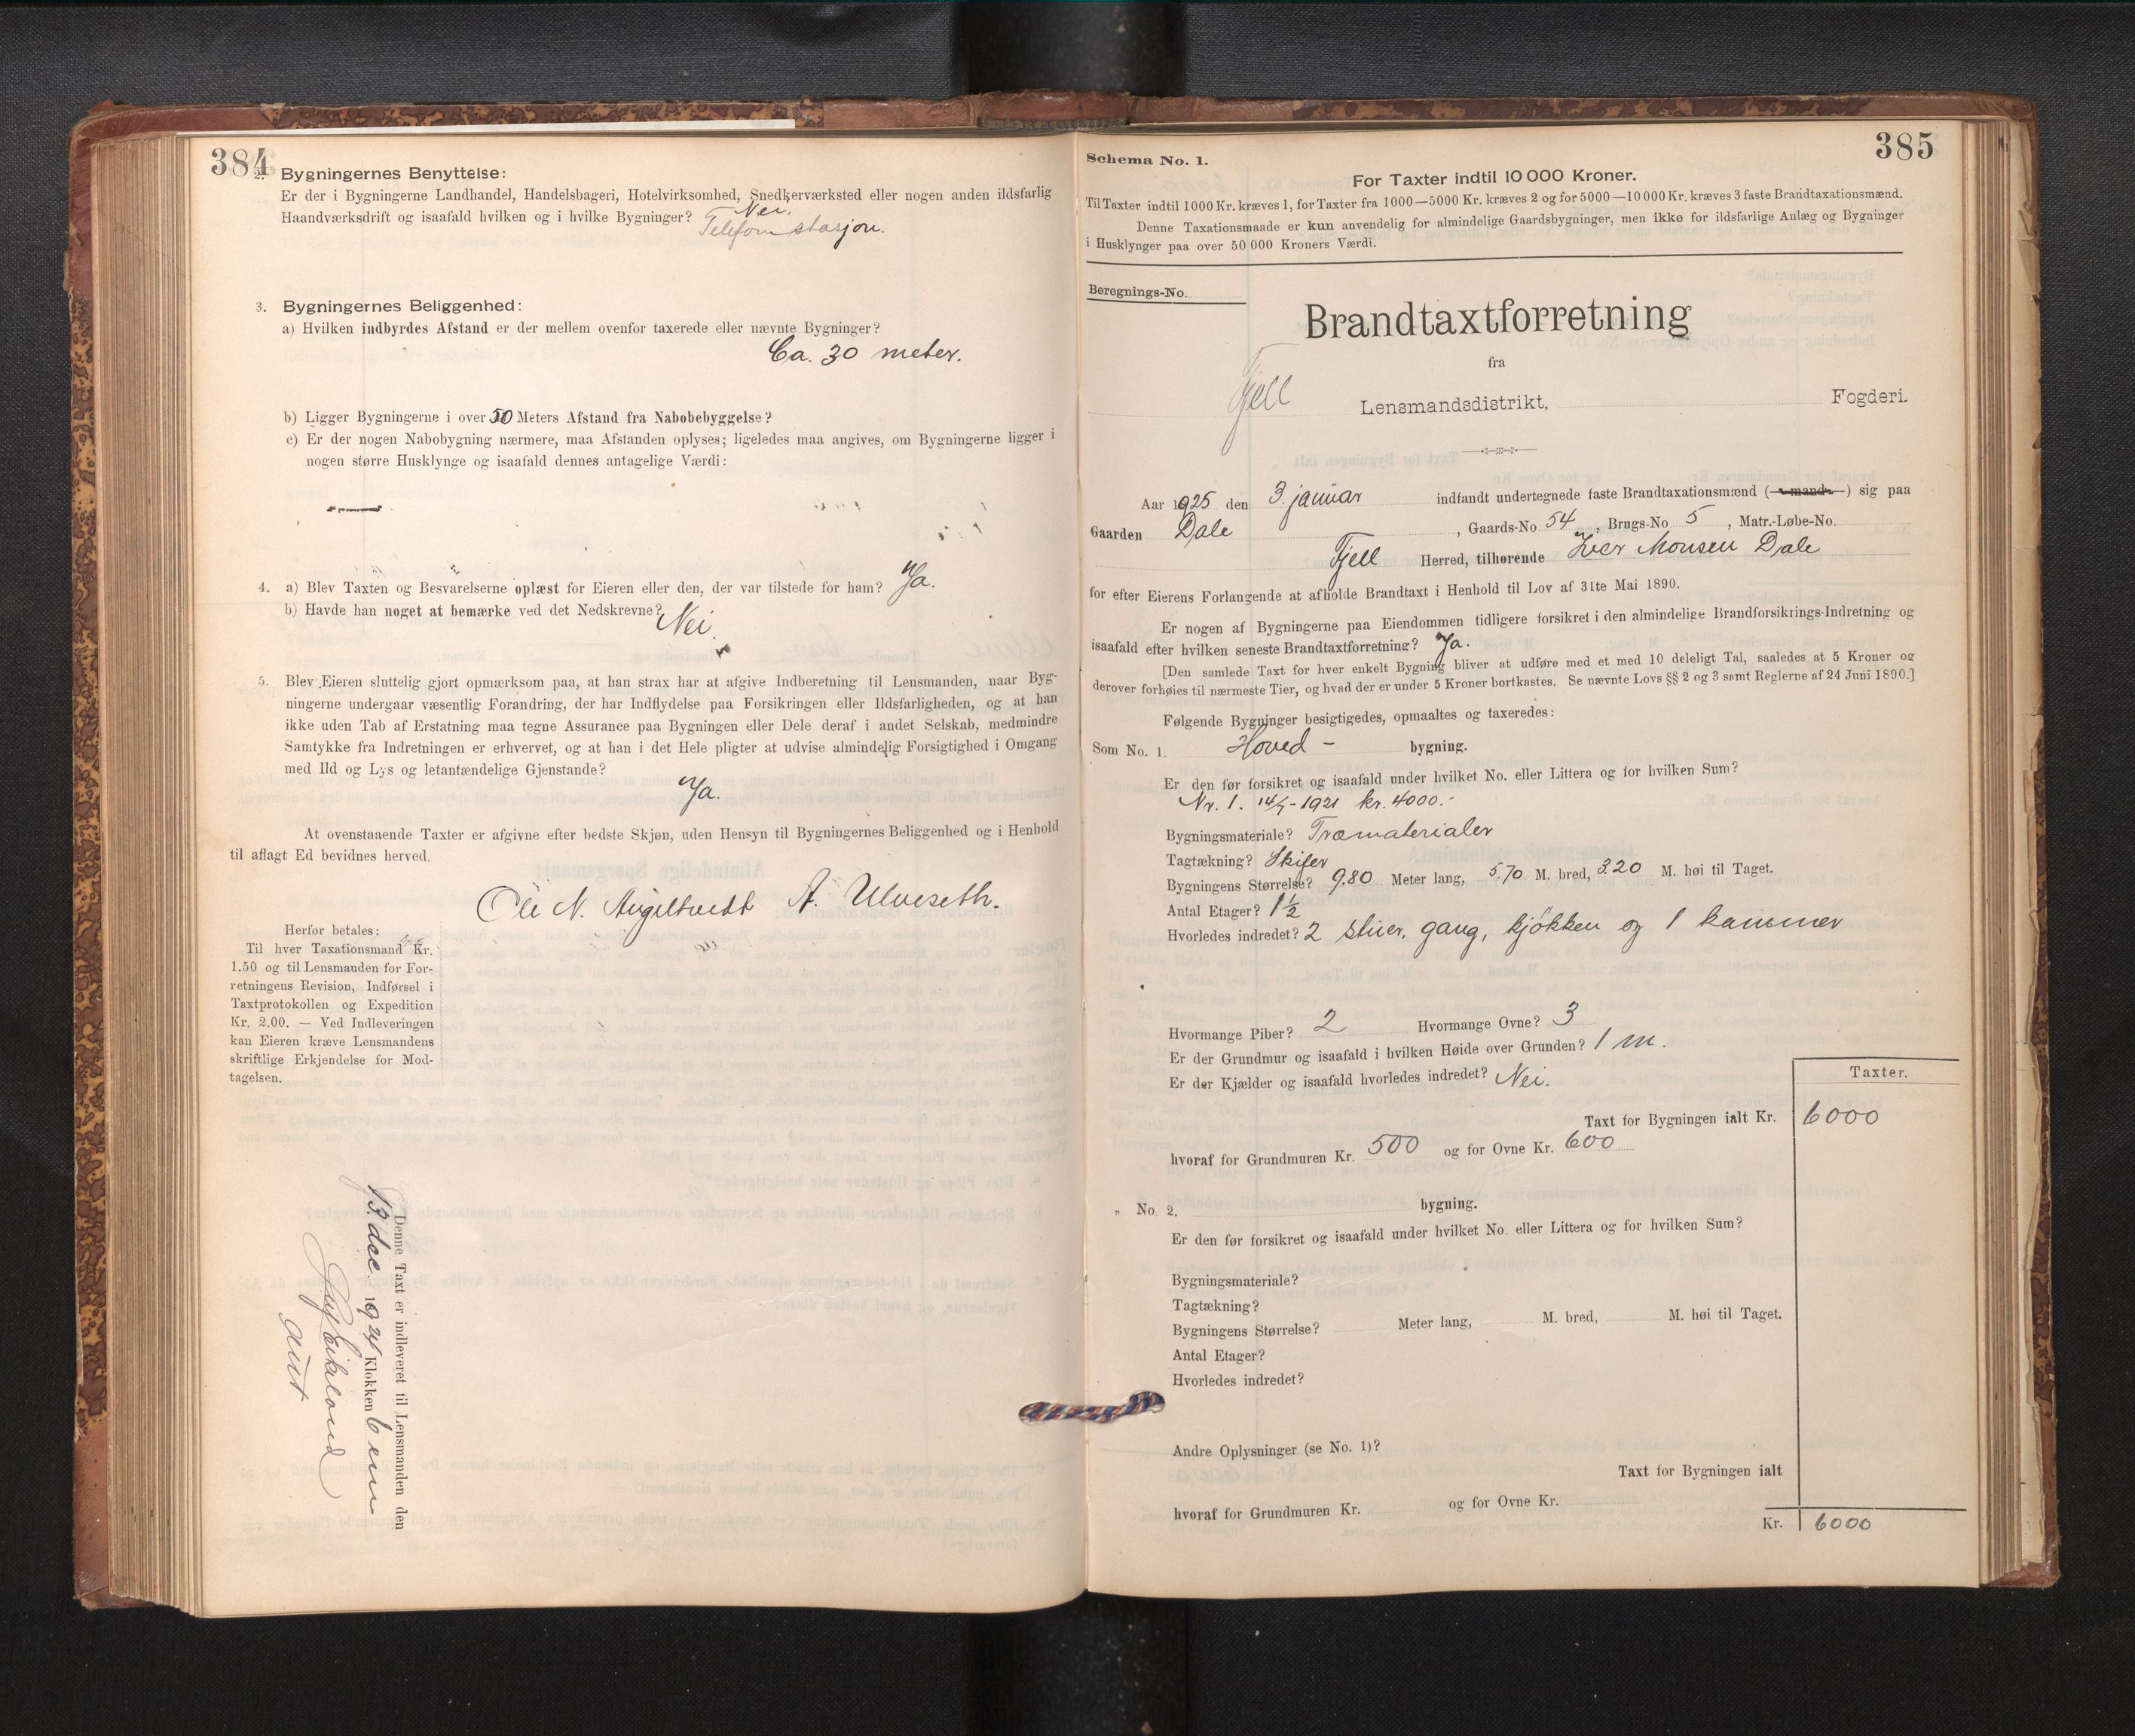 384
2. Bygningernes Benyttelse:
Er der i Bygningerne Landhandel, Handelsbageri, Hotelvirksomhed, Snedkerværksted eller nogen anden ildsfarlig
Haandværksdrift og isaafald hvilken og i hvilke Bygninger? Nei.
Telefonstasjon.
3. Bygningernes Beliggenhed:
a) Hvilken indbyrdes Afstand er der mellem ovenfor taxerede eller nævnte Bygninger?
Ca. 30 meter.
b) Ligger Bygningerne i over 50 Meters Afstand fra Nabobebyggelse?
c) Er der nogen Nabobygning nærmere, maa Afstanden oplyses; ligeledes maa angives, om Bygningerne ligger i
nogen større Husklynge og isaafald dennes antagelige Værdi:
4. a) Blev Taxten og Besvarelserne oplæst for Eieren eller den, der var tilstede for ham? Ja.
b) Havde han noget at bemærke ved det Nedskrevne? Nei.
5. Blev Eieren sluttelig gjort opmærksom paa, at han strax har at afgive Indberetning til Lensmanden, naar Byg-
ningerne undergaar væsentlig Forandring, der har Indflydelse paa Forsikringen eller Ildsfarligheden, og at han
ikke uden Tab af Erstatning maa tegne Assurance paa Bygningen eller Dele deraf i andet Selskab, medmindre
Samtykke fra Indretningen er erhvervet, og at han i det Hele pligter at udvise almindelig Forsigtighed i Omgang
med Ild og Lys og letantændelige Gjenstande?
Ja.
At ovenstaaende Taxter er afgivne efter bedste Skjøn, uden Hensyn til Bygningernes Beliggenhed og i Henhold
til aflagt Ed bevidnes herved.
Ole N. Angeltvedt A. Ulveseth.
Herfor betales:
Til hver Taxationsmand Kr.
1.50 og til Lensmanden for For-
retningens Revision, Indførsel i
Taxtprotokollen og Expedition
Kr. 2.00. — Ved Indleveringen
kan Eieren kræve Lensmandens
skriftlige Erkjendelse for Mod-
tagelsen.
Denne Taxt er indleveret til Lensmanden den
13 dec. 1924 Klokken 6 em
385
Schema No. 1.
For Taxter indtil 10 000 Kroner.
Til Taxter indtil 1000 Kr. kræves 1, for Taxter fra 1000—5000 Kr. kræves 2 og for 5000—10 000 Kr. kræves 3 faste Brandtaxationsmænd.
Denne Taxationsmaade er kun anvendelig for almindelige Gaardsbygninger, men ikke for ildsfarlige Anlæg og Bygninger
i Husklynger paa over 50 000 Kroners Værdi.
Beregnings-No.
Brandtaxtforretning
fra
Fjell Lensmandsdistrikt, Fogderi.
Aar 1925 den 3. januar indfandt undertegnede faste Brandtaxationsmænd (-mand-) sig paa
Gaarden Dale, Gaards-No 54, Brugs-No 5, Matr.-Løbe-No.
Fjell Herred, tilhørende Iver Monsen Dale
for efter Eierens Forlangende at afholde Brandtaxt i Henhold til Lov af 31te Mai 1890.
Er nogen af Bygningerne paa Eiendommen tidligere forsikret i den almindelige Brandforsikrings-Indretning og
isaafald efter hvilken seneste Brandtaxtforretning? Ja.
[Den samlede Taxt for hver enkelt Bygning bliver at udføre med et med 10 deleligt Tal, saaledes at 5 Kroner og
derover forhøies til nærmeste Tier, og hvad der er under 5 Kroner bortkastes. Se nævnte Lovs §§ 2 og 3 samt Reglerne af 24 Juni 1890.]
Følgende Bygninger besigtigedes, opmaaltes og taxeredes:
Som No. 1. Hoved - bygning.
Er den før forsikret og isaafald under hvilket No. eller Littera og for hvilken Sum?
Nr. 1. 14/7-1921 kr. 4000.-
Bygningsmateriale? Træmaterialer
Tagtækning? Skifer
Bygningens Størrelse? 9.80 Meter lang, 5.70 M. bred, 3.20 M. høi til Taget.
Antal Etager? 1½
Hvorledes indredet? 2 stuer, gang, kjøkken og 1 kammer
Hvormange Piber? 2 Hvormange Ovne? 3
Er der Grundmur og isaafald i hvilken Høide over Grunden? 1 m.
Er der Kjælder og isaafald hvorledes indredet? Nei.
Taxter.
Taxt for Bygningen ialt Kr. 6000
hvoraf for Grundmuren Kr. 500 og for Ovne Kr. 600
„ No. 2. bygning.
Er den før forsikret og isaafald under hvilket No. eller Littera og for hvilken Sum?
Bygningsmateriale?
Tagtækning?
Bygningens Størrelse? Meter lang, M. bred, M. høi til Taget.
Antal Etager?
Hvorledes indredet?
Andre Oplysninger (se No. 1)?
Taxt for Bygningen ialt
hvoraf for Grundmuren Kr. og for Ovne Kr.
Kr. 6000